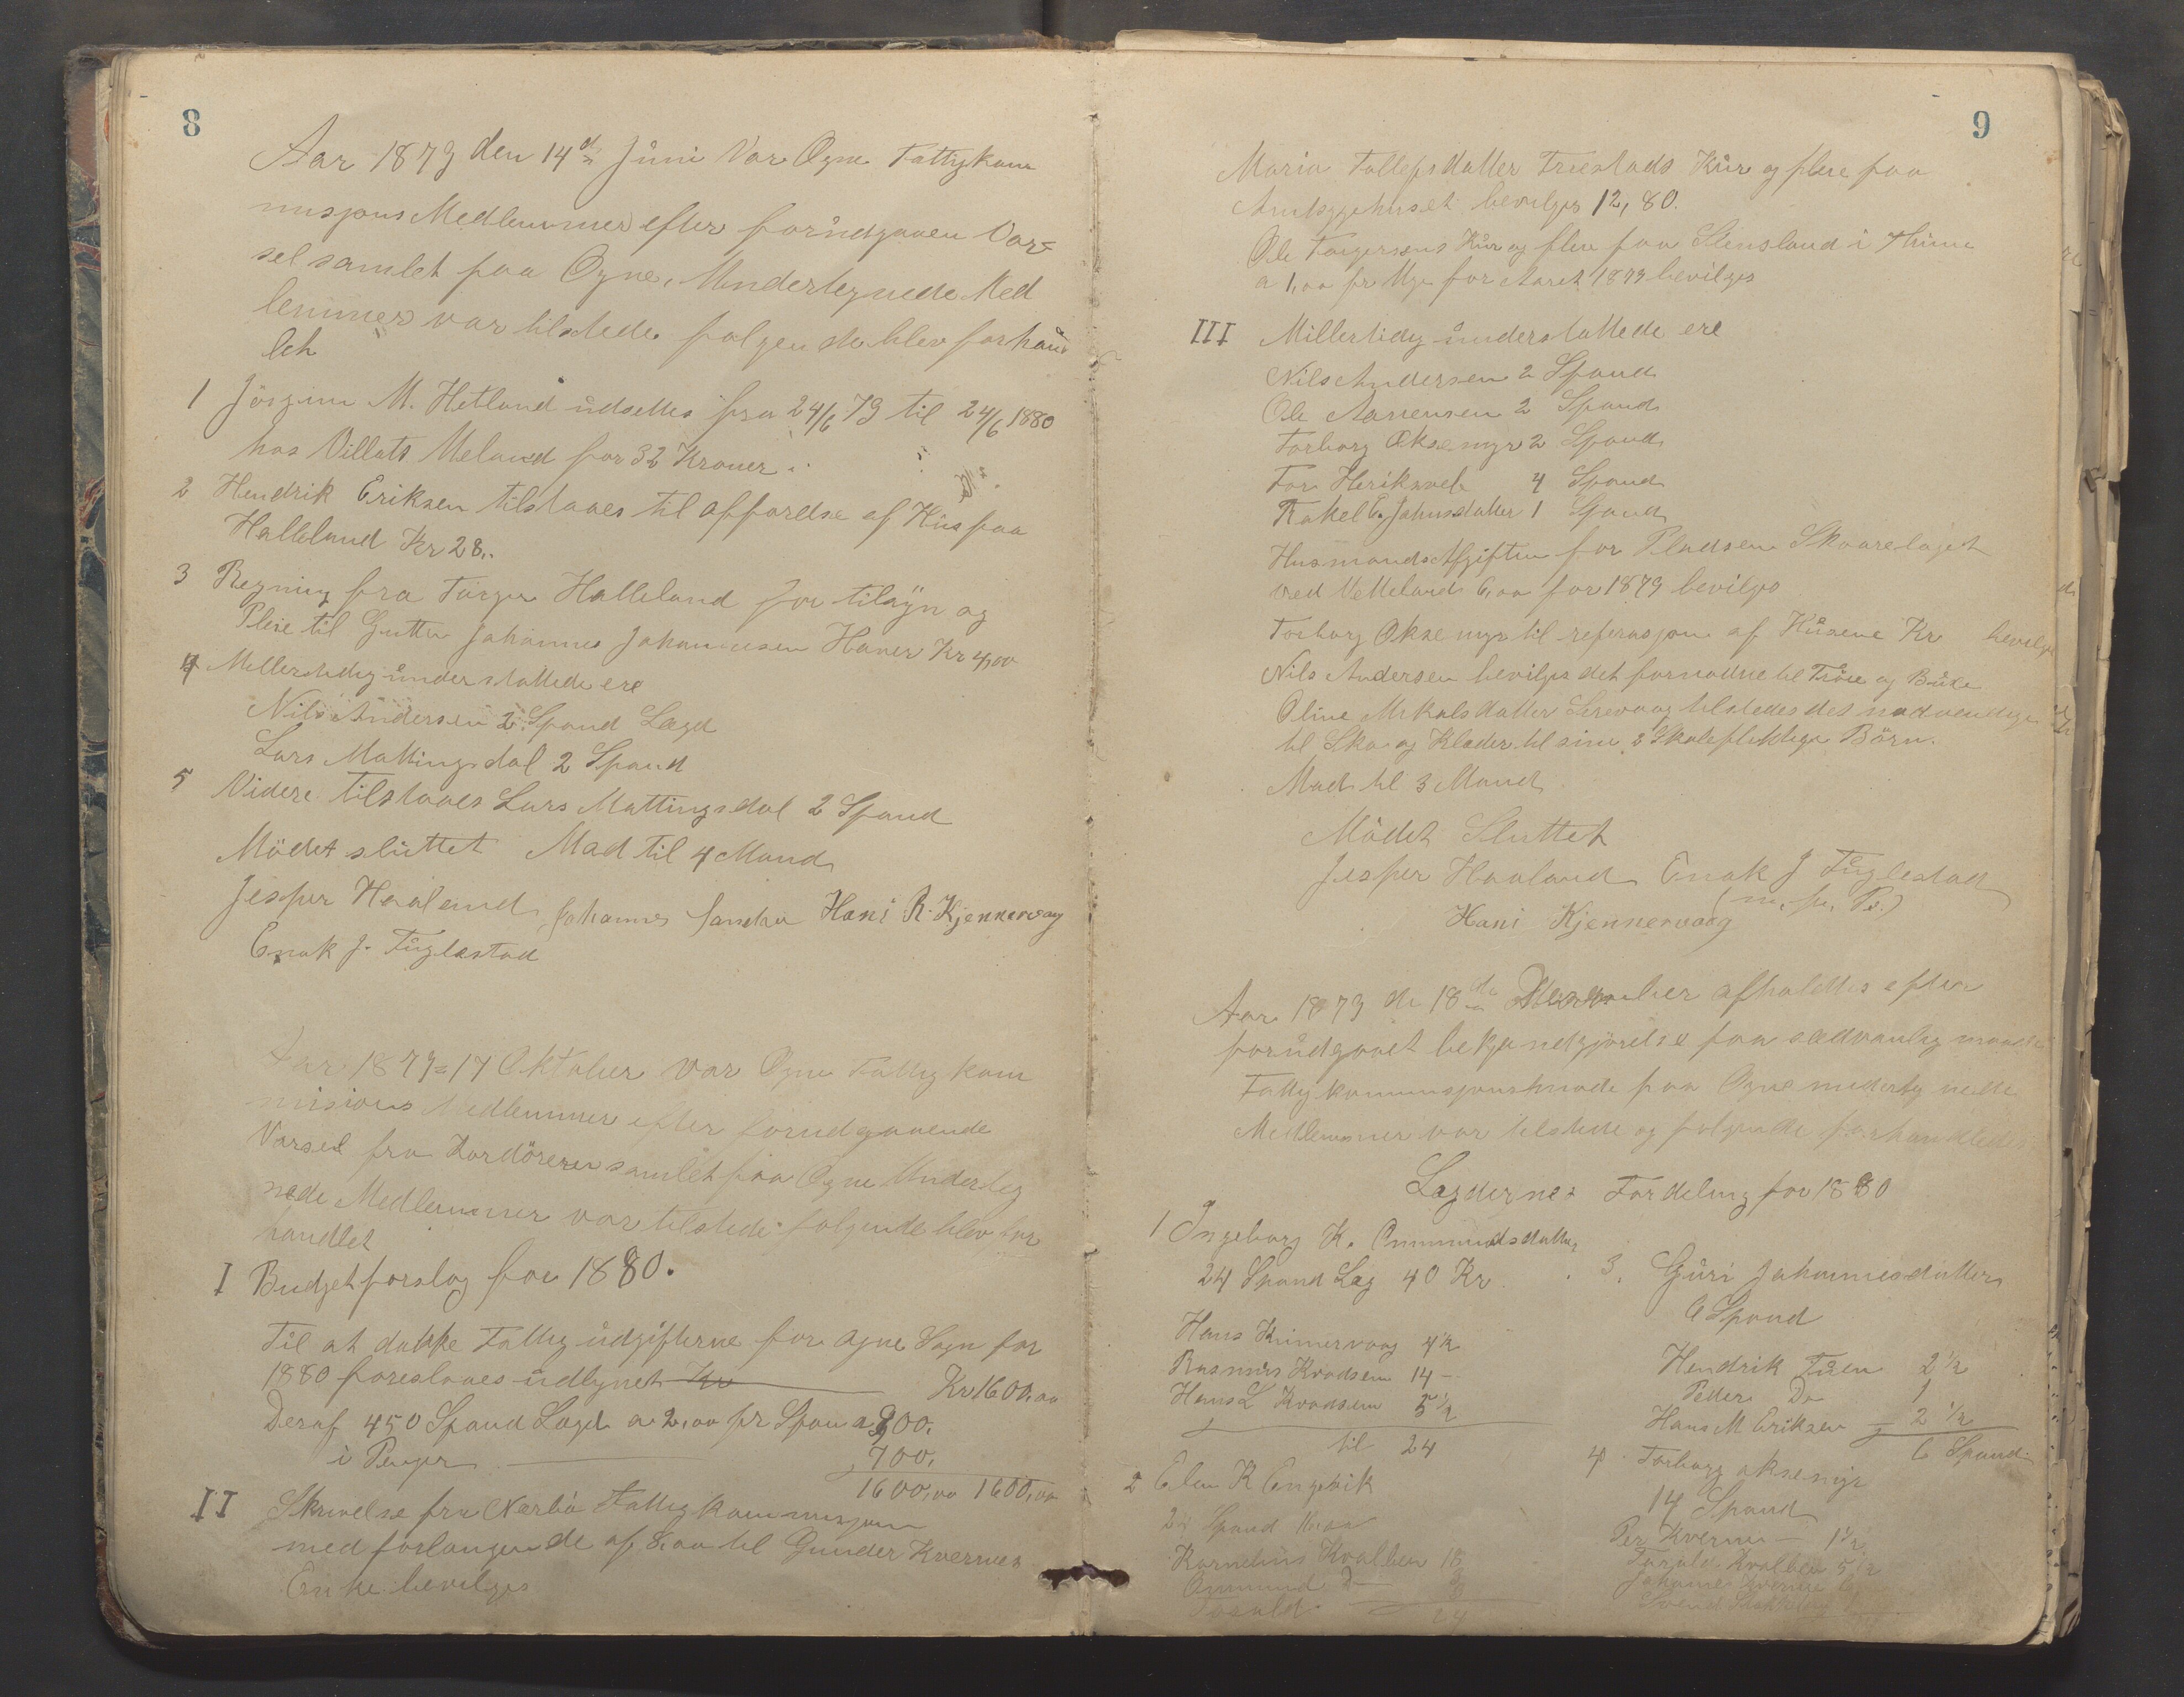 8
Aar 1879 den 14de Juni Var Ogne Fattigkom
misjons Medlemmer efter forudgaaen Var-
sel samlet paa Ogne, Undertegnede Med
lemmer var tilstede følgende blev forhand
let
1 Jörgine M. Hetland udsettes fra 24/6 79 til 24/6 1880
hos Villats Ueland for 32 Kroner
2 Hendrik Eriksen tilstaaes til opførelse af Hus paa
Halleland Kr 28,.
3 Regning fra Torger Halleland for tilsyn og
Pleie til Gutten Johannes Johannesen Haver Kr 4,00
4 Mellertidig understøttede ere
Nils Andersen 2 Spand Lægd
Lars Mattingsdal 2 Spand
5 Videre tilstaaes Lars Mattingsdal 2 Spand
Mödet sluttet Mad til 4 Mand
Jesper Haaland Johannes Hans R. Kjennervaag
Enok J. Fuglestad
Aar 1879 = 17 Oktober var Ogne Fattigkom
misions Medlemmer efter forudgaaende
Varsel fra Vordörerer samlet paa Ogne Underteg
nede Medlemmer var tilstede følgende blev for
handlet
I Budgetforslag for 1880.
Til at dække Fattigudgifterne for Ogne Sogn for
1880 foreslaaes udlignet Kr Kr 1600,00
Deraf 450 Spand Lægd a 2,00 pr Span a 900,
i Penger 700,
1600,00 1600,00
II Skrivelse fra Nærbö Fattigkommisjon
med forlangende af 8,00 til Gunder Kvernes
Enke bevilges
9
Maria Tollefsdatter Frestads Kur og pleie paa
Amtssygehuset bevilges 12,80.
Ole Torgersens Kur og pleie paa Stensland i Thime
a 1,00 pr Uge for Aaret 1879 bevilges
III Millertidig understøttede ere
Nils Andersen 2 Spand
Ole Aanensen 2 Spand
Torborg Oksemyr 2 Spand
Tor Heriksveh 4 Spand
Rakel E. Johnsdatter 1 Spand
Husmands Afgiften for Pladsen Skaarelaget
ved Vetteland 6,00 for 1879 bevilges
Torborg Oksemyr til reperasjon af Husene Kr bevilges
Nils Andersen bevilges det fornødne til Tröie og Buxe
Oline Mikalsdatter Sirevaag tilstedes det nødvendige
til Sko og Klæder til sine 2 Skolepliktige Börn.
Mad til 3 Mand
Mödet Sluttet
Jesper Haaland Enok J Fuglestad
Hans Kjennervaag
Aar 1879 de 18de Desember afholdtes efter
forudgaaet bekjendtgjörelse paa sædvanlig maade
Fattigkommisjonsmøde paa Ogne undertegnede
Medlemmer var tilstede og følgende forhandledes
Lægdernes Fordeling for 1880
1 Ingeborg K. Ommundsdatter
24 Spand Læg 40 Kr
Hans Kinnervaag 4½
Rasmus Kvadsem 14 -
Hans L Kvadsem 5½
til 24
2 Elen K Engevik
24 Spand
Kornelius Kvalben 18
Ommund Do 3
24
3. Guri Johannesdatter
6 Spand
Hendrik Tuen 2½
Peder Do 1
Hans M Eriksen 2½
6 Spand
4. Torborg oksemyr
14 Spand
Per Kverme - 1½
Torald Kvalben 5½